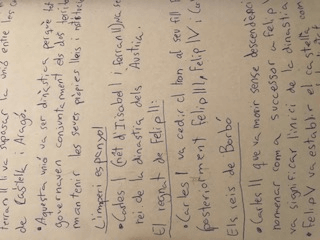 Ferran II va suposar la unió entre les co
de Castella i Aragó.
• Aquesta unió va ser dinàstica perquè tot
governaven conjuntament els dos territ
mantenir les seves pròpies lleis i instituci
L'imperi espanyol
• Carles I (nét d'Isabel I i Ferran II) va se
rei de la dinastia dels Àustria.
El regnat de Felip II:
• Carles I va cedir el tron al seu fill F
posteriorment Felip III, Felip IV i Ca
Els reis de Borbó
• Carles II que va morir sense descendèn
nomenar com a successor a Felip V
va significar l'inici de la dinastia
• Felip V va establir el castellà com